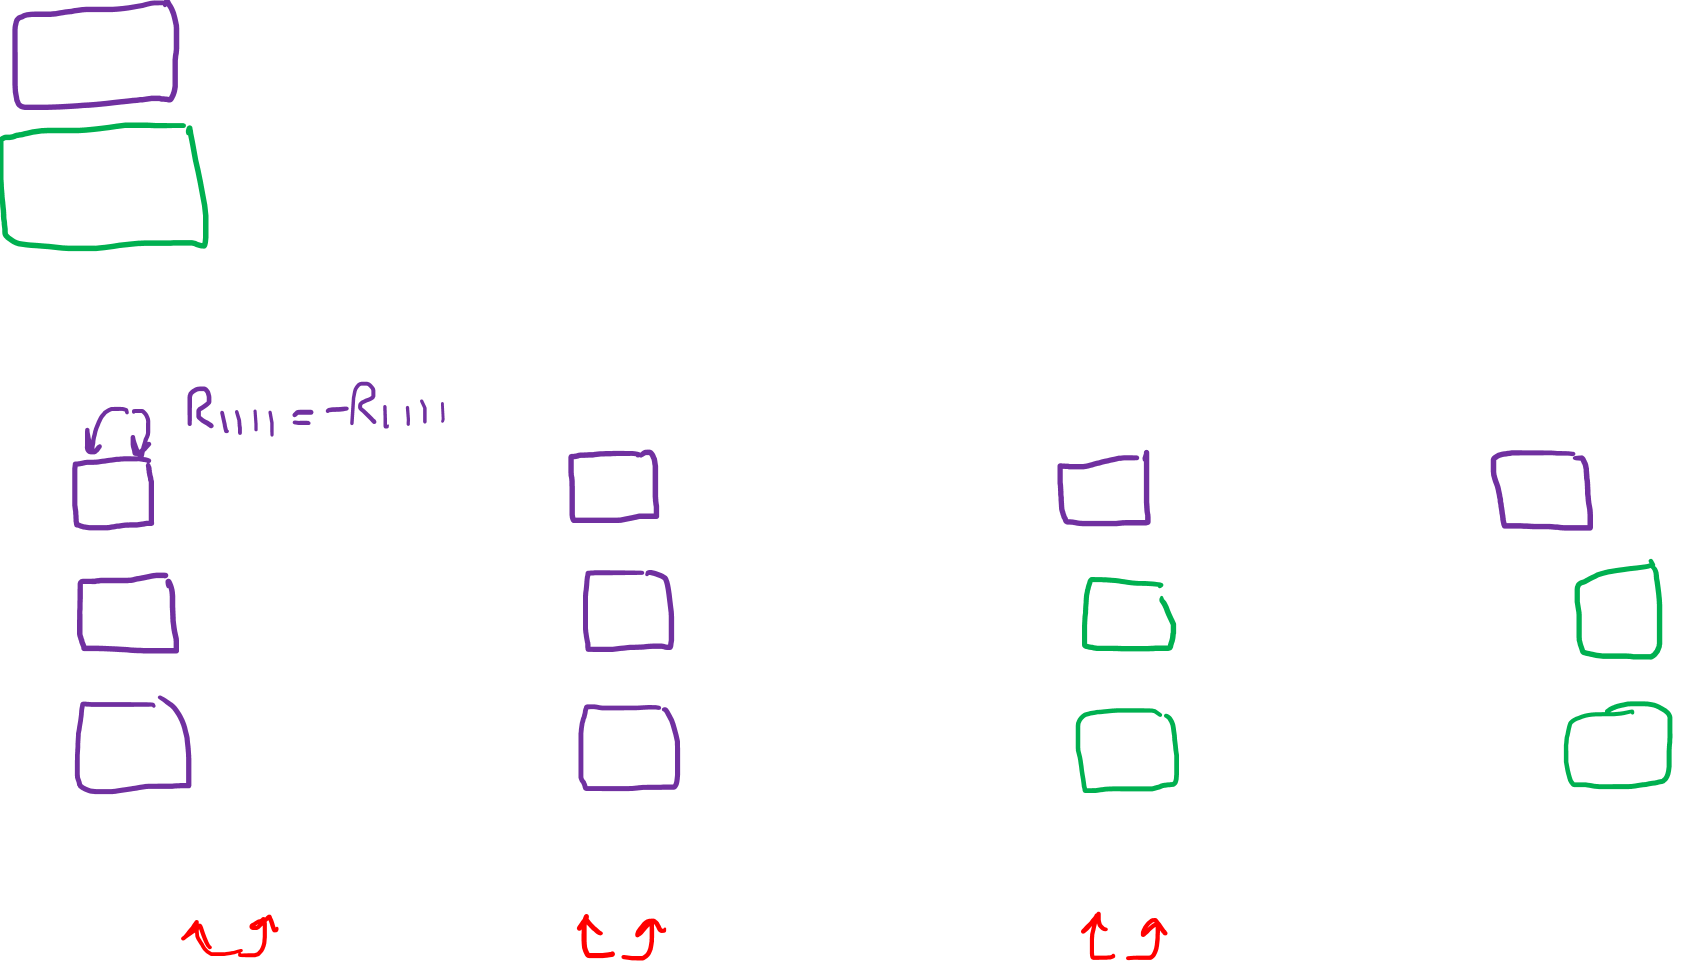 R₁₁₁₁ = -R₁₁₁₁